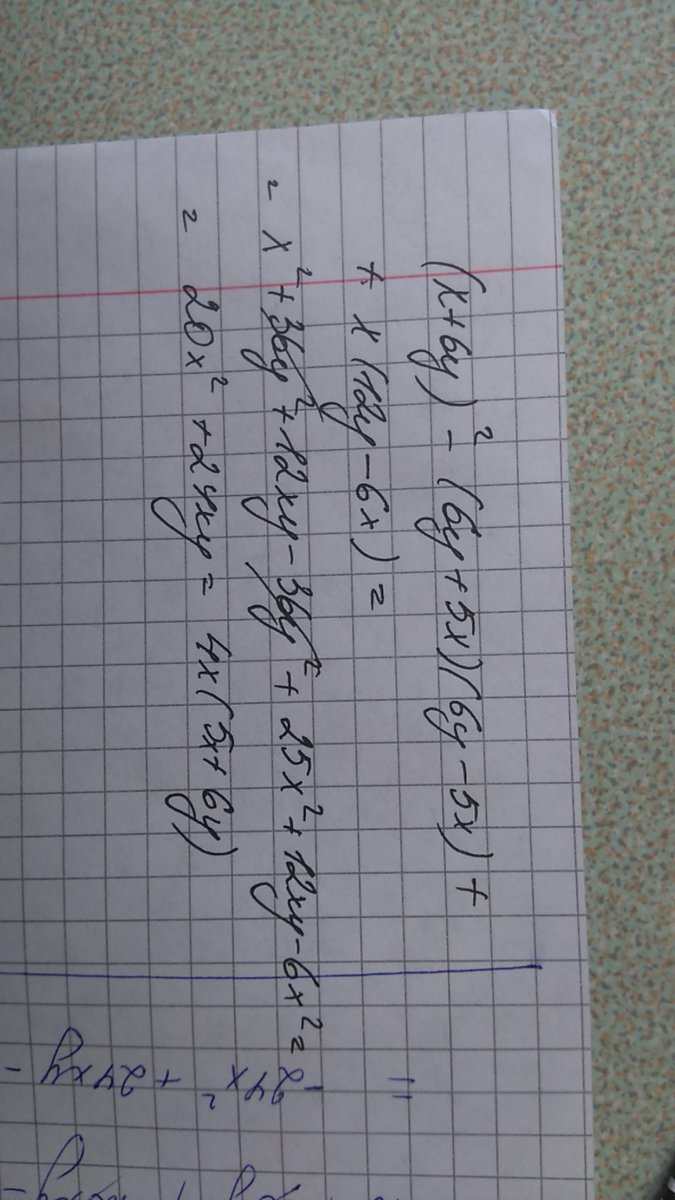 (x+6y)² - (6y+5x)(6y-5x)+
+ x(12y-6x) =
= x²+36y²+12xy-36y²+25x²+12xy-6x²=
= 20x²+24xy= 4x(5x+6y)
=
-24x²+24xy-